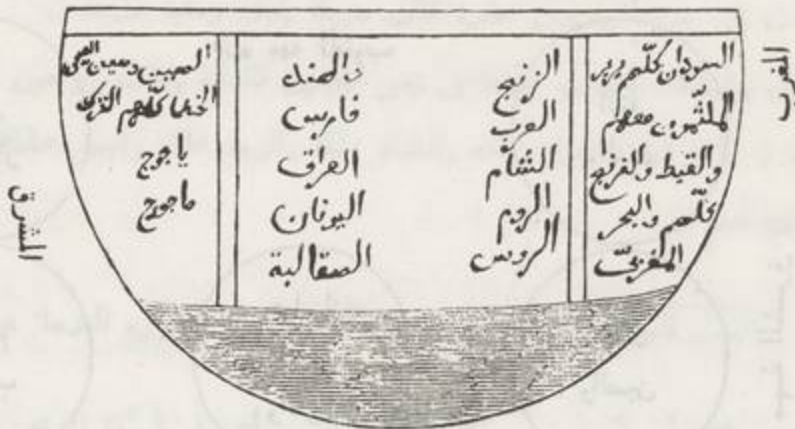 المغرب
السودان كلّهم بربر
الملثّمون معهم
والقبط والفرنج
كلّهم والبحر
المغربيّ
الزنج
العرب
الشام
الروم
الروس
والهند
فارس
العراق
اليونان
الصقالبة
الصين وصين الصين
الخطا كلّهم الترك
ياجوج
ماجوج
المشرق